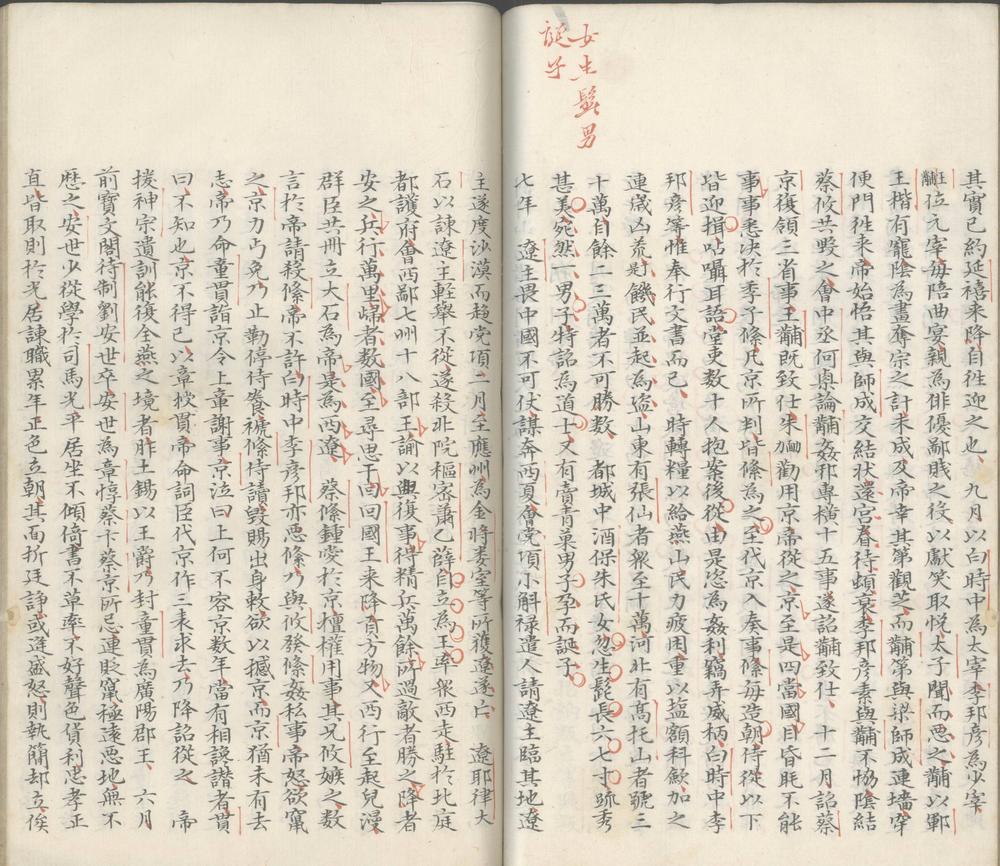 女生髭男
誕子
其實已約延禧来降自徃迎之也、九月以白時中為太宰李邦彦為少宰
王黼位元宰毎陪曲宴親為俳優鄙賤之役以獻笑取悦太子聞而惡之黼以鄆
王楷有寵陰為畫奪宗之計未成及帝幸其第觀芝而黼第與梁師成連墻穿
便門徃来帝始悟其與師成交結状還宮眷待頓衰李邦彦素與黼不恊陰結
蔡攸共毀之會中丞何㮚論黼姦邪專横十五事遂詔黼致仕、十二月詔蔡
京復領三省事王黼既致仕朱勔勸用京帝從之京至是四當國目昏眊不能
事事悉决於季子絛凡京所判皆絛為之至代京入奏事絛毎造朝侍從以下
皆迎揖呫囁耳語堂吏数十人抱案後從由是恣為姦利竊弄威柄白時中李
邦彦等惟奉行文書而已、時轉糧以給燕山民力疲困重以塩額科歛加之
連歳凶荒於是饑民並起為盗山東有張仙者衆至十萬河北有高托山者號三
十萬自餘二三萬者不可勝数、都城中酒保朱氏女忽生髭長六七寸疏秀
甚美宛然一男子特詔為道士又有賣青菓男子孕而誕子
七年 遼主畏中國不可仗謀奔西夏會党項小斛禄遣人請遼主臨其地遼
主遂度沙漠而趨党項二月至應州為金將婁室等所獲遼遂亡 遼耶律大
石以諫遼王輕舉不從遂殺北院樞密蕭乙薛自立為王率衆西走駐於北庭
都護府會西鄙七州十八部王諭以興復事得精兵萬餘所過敵者勝之降者
安之兵行萬里歸者数國至尋思干囘囘國王来降貢方物又西行至起兒漫
群臣共冊立大石為帝是為西遼、蔡絛鍾愛於京擅權用事其兄攸嫉之数
言於帝請殺絛帝不許白時中李彦邦亦惡絛乃與攸發絛姦私事帝怒欲竄
之京力丐免乃止勒停侍養褫絛侍讀毀賜出身敕欲以撼京而京猶未有去
志帝乃命童貫詣京令上章謝事京泣曰上何不容京数年當有相讒譖者貫
曰不知也京不得已以章授貫帝命詞臣代京作三表求去乃降詔從之 帝
援神宗遺訓能復全燕之境者胙土錫以王爵乃封童貫為廣陽郡王、六月
前寶文閣待制劉安世卒安世為章惇蔡卞蔡京所忌連貶竄極遠惡地無不
歴之安世少從學於司馬光平居坐不傾倚書不草率不好聲色貨利忠孝正
直皆取則於光居諫職累年正色立朝其面折廷諍或逢盛怒則執簡却立俟